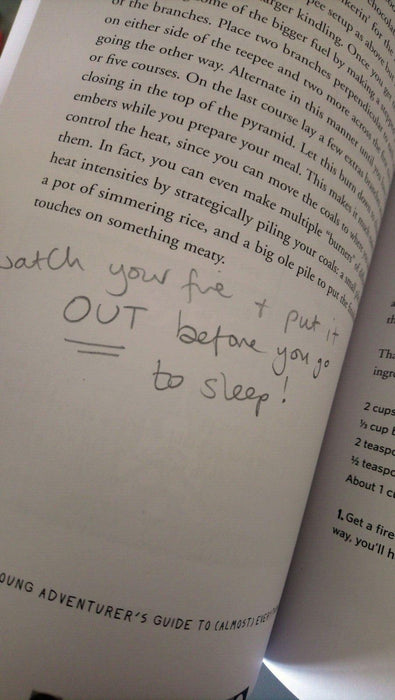 setup as above but
larger kindling. Once you
of the bigger fuel by making a
of the branches. Place two branches perpendicular
on either side of the teepee and two more across the
going the other way. Alternate in this manner until you
or five courses. On the last course lay a few extras
closing in the top of the pyramid. Let this burn down to
embers while you prepare your meal. This makes it much
control the heat, since you can move the coals to where
them. In fact, you can even make multiple "burners" of
heat intensities by strategically piling your coals: a small
a pot of simmering rice, and a big ole pile to put the
touches on something meaty.
watch your fire + put it
OUT before you go
to sleep!
YOUNG ADVENTURER'S GUIDE TO (ALMOST)
2 cups
⅓ cup
2 teaspo
½ teaspo
About 1 c
1. Get a fire
way, you'll h